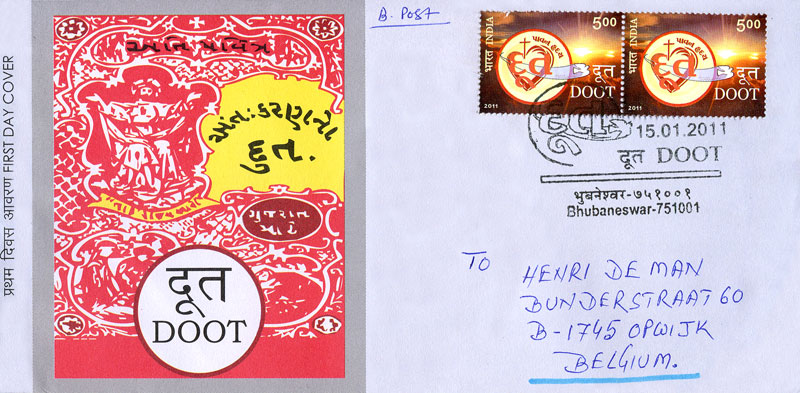 प्रथम दिवस आवरण FIRST DAY COVER
અતિ પવિત્ર
અંત:કરણનો
દુત.
ગુજરાત
માટે
दूत
DOOT
B. POST
भारत INDIA
5.00
પાવન હૃદય
દૂત
दूत
DOOT
2011
भारत INDIA
5.00
પાવન હૃદય
દૂત
दूत
DOOT
2011
15.01.2011
दूत DOOT
भुबनेश्वर-७५१००१
Bhubaneswar-751001
TO
HENRI DE MAN
BUNDERSTRAAT 60
B-1745 OPWIJK
BELGIUM.